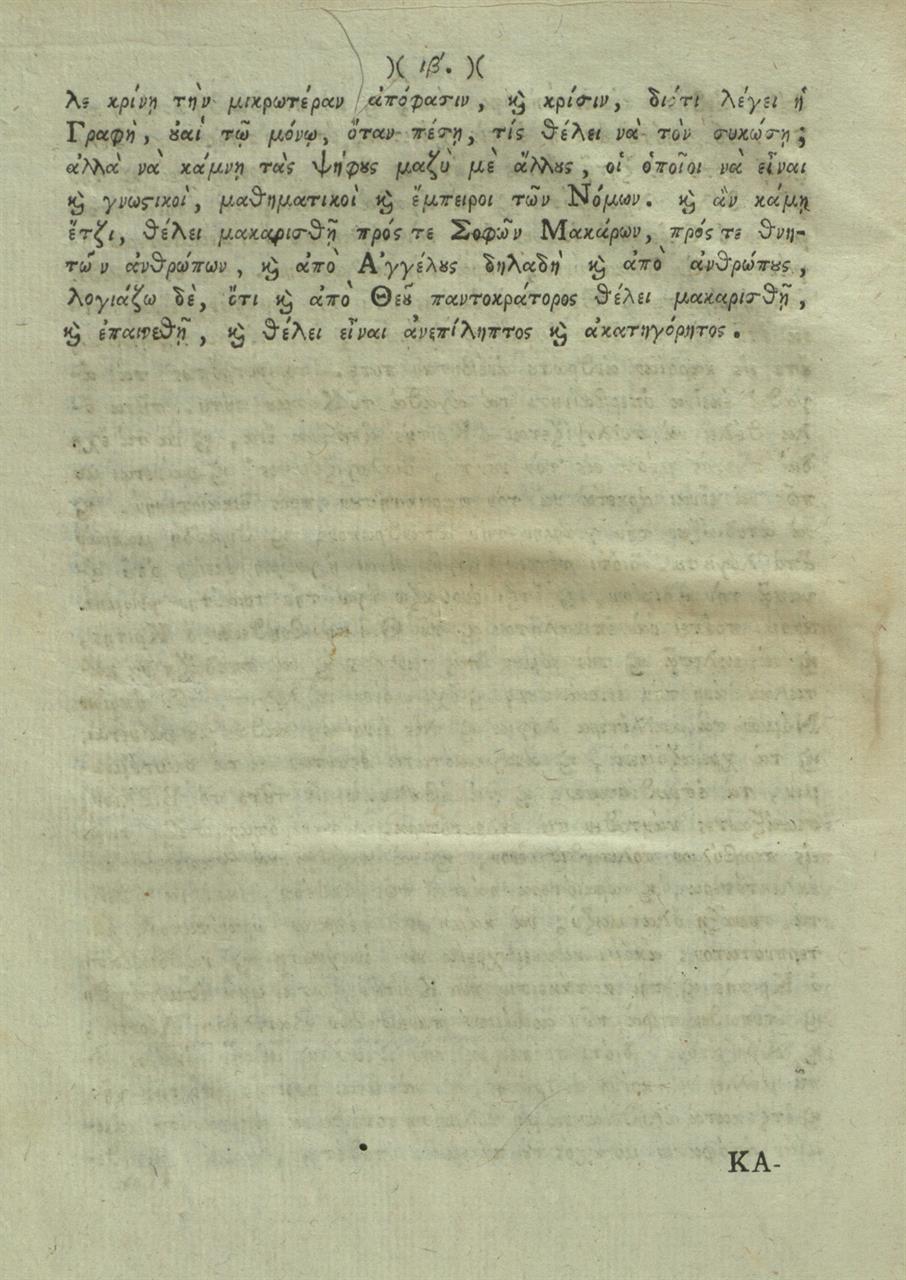 )( ιβ'. )(
λε κρίνῃ τὴν μικρωτέραν ἀπόφασιν, ϗ κρίσιν, διότι λέγει ἡ
Γραφὴ, ȣαὶ τῷ μόνῳ, ὅταν πέσῃ, τίς θέλει νὰ τὸν συκώσῃ;
ἀλλὰ νὰ κάμνῃ τὰς ψήφȣς μαζὺ μὲ ἄλλȣς, οἱ ὁποῖοι νὰ εἶναι
ϗ γνωςικοὶ, μαθηματικοὶ ϗ ἔμπειροι τῶν Νόμων. ϗ ἂν κάμῃ
ἔτζι, θέλει μακαρισθῇ πρός τε Σοφῶν Μακάρων, πρός τε θνη-
τῶν ἀνθρώπων, ϗ ἀπὸ Ἀγγέλȣς δηλαδὴ ϗ ἀπὸ ἀνθρώπȣς,
λογιάζω δὲ, ὅτι ϗ ἀπὸ Θεȣ͂ παντοκράτορος θέλει μακαρισθῇ,
ϗ ἐπαινεθῇ, ϗ θέλει εἶναι ἀνεπίληπτος ϗ ἀκατηγόρητος.
ΚΑ-